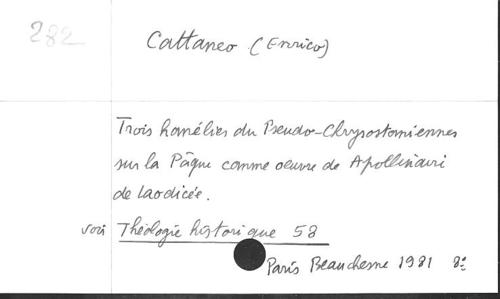 282
Cattaneo (Enrico)
Trois homélies du Pseudo-Chrysostomiennes
sur la Pâque comme oeuvre de Apollinari
de Laodicée.
voir Théologie historique 58
Paris Beauchesne 1981 8º